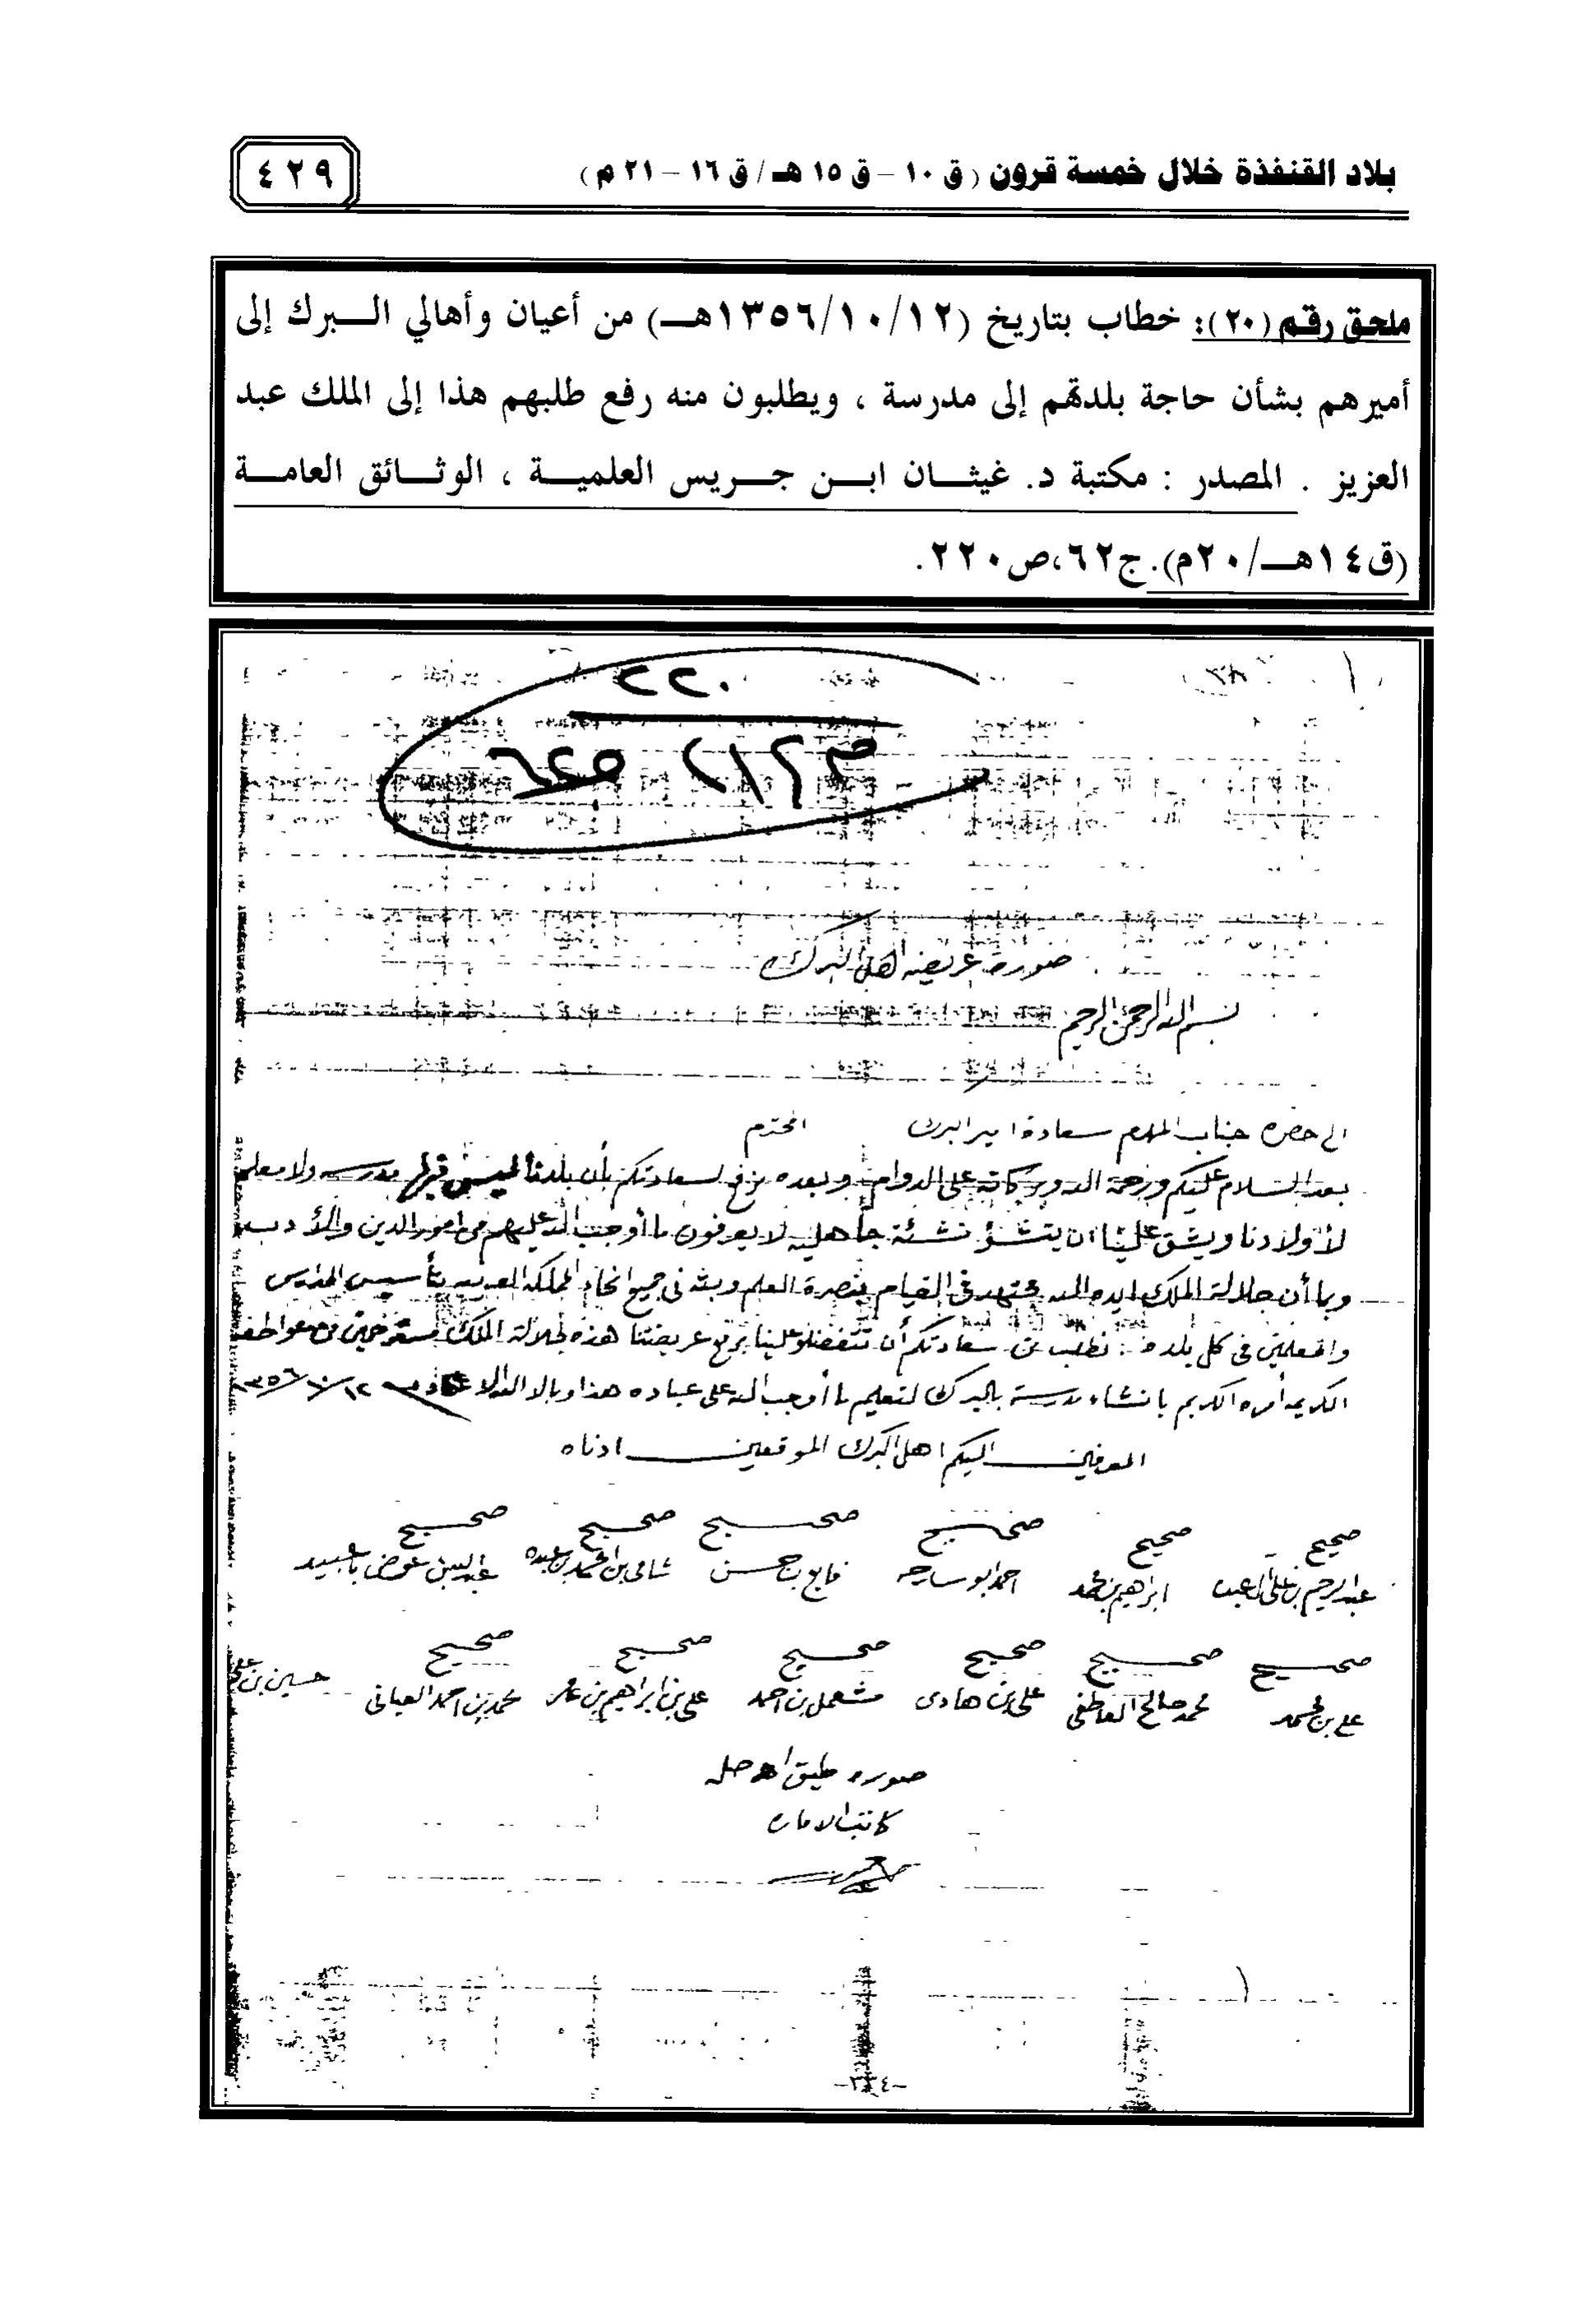 بلاد القنفذة خلال خمسة قرون (ق ١٠ – ق ١٥ هـ / ق ١٦ – ٢١ م)
٤٢٩
ملحق رقم (٢٠): خطاب بتاريخ (١٣٥٦/١٠/١٢هـ) من أعيان وأهالي البرك إلى
أميرهم بشأن حاجة بلدتهم إلى مدرسة ، ويطلبون منه رفع طلبهم هذا إلى الملك عبد
العزيز . المصدر : مكتبة د. غيثان ابن جريس العلمية ، الوثائق العامة
(ق١٤هـ/٢٠م). ج٦٢،ص٢٢٠.
٢٢٠
صورة عريضه اهل البرك
بسم الله الرحمن الرحيم
الى حضرة جناب المكرم سعادة امير البرك المحترم
بعد السلام عليكم ورحمة الله وبركاته على الدوام وبعده نرفع لسعادتكم بأن بلدنا ليس فيها مدرسه ولا معلم
لأولادنا ويشق علينا ان يتنشؤ نشئة جاهليه لا يعرفون ما أوجب الله عليهم من امور الدين والأدب
وبما أن جلالة الملك ايده الله مجتهد في القيام بنصرة العلم وبثه في جميع انحاء المملكه العربيه بتأسيس المدارس
والمعلمين في كل بلده : نطلب من سعادتكم أن تتفضلو علينا برفع عريضتنا هذه لجلالة الملك مسترحمين من عواطفه
الكريمه أمره الكريم بانشاء مدرسة بالبرك لتعليم ما أوجب الله على عباده هذا وبالله ١٣٥٦/١٠/١٢
المعرفين اليكم اهل البرك الموقعين ادناه
صحيح صحيح صحيح صحيح صحيح صحيح
عبد الرحيم بن علي ابراهيم بن محمد احمد ابو سارحه فايع بن حسن شامي بن عبده عوض باعبيد
صحيح صحيح صحيح صحيح صحيح صحيح
علي بن محمد محمد صالح علي بن هادي مشعل بن احمد علي بن ابراهيم بن عمر محمد بن احمد حسين بن علي
صوره طبق اصله
كاتب الاماره